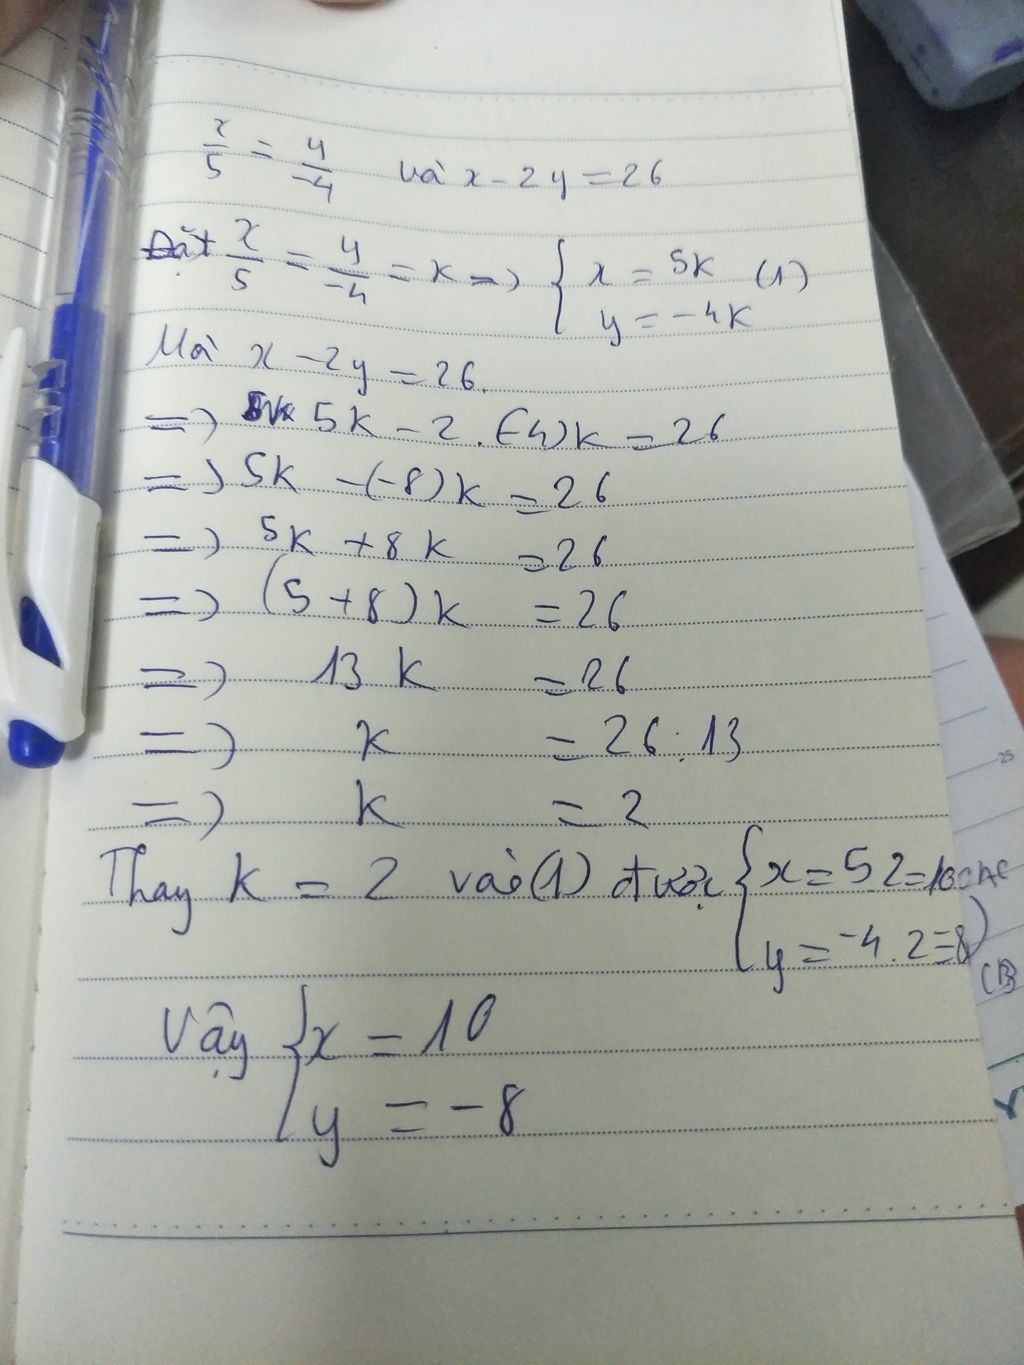 x/5 = y/-4 và x - 2y = 26
Đặt x/5 = y/-4 = k => { x = 5k (1)
y = -4k
Mà x - 2y = 26.
=> 5k - 2.(-4)k = 26
=> 5k -(-8)k = 26
=> 5k + 8k = 26
=> (5+8)k = 26
=> 13k = 26
=> k = 26:13
=> k = 2
Thay k = 2 vào (1) được { x = 5.2=10
y = -4.2=8
Vậy { x = 10
y = -8